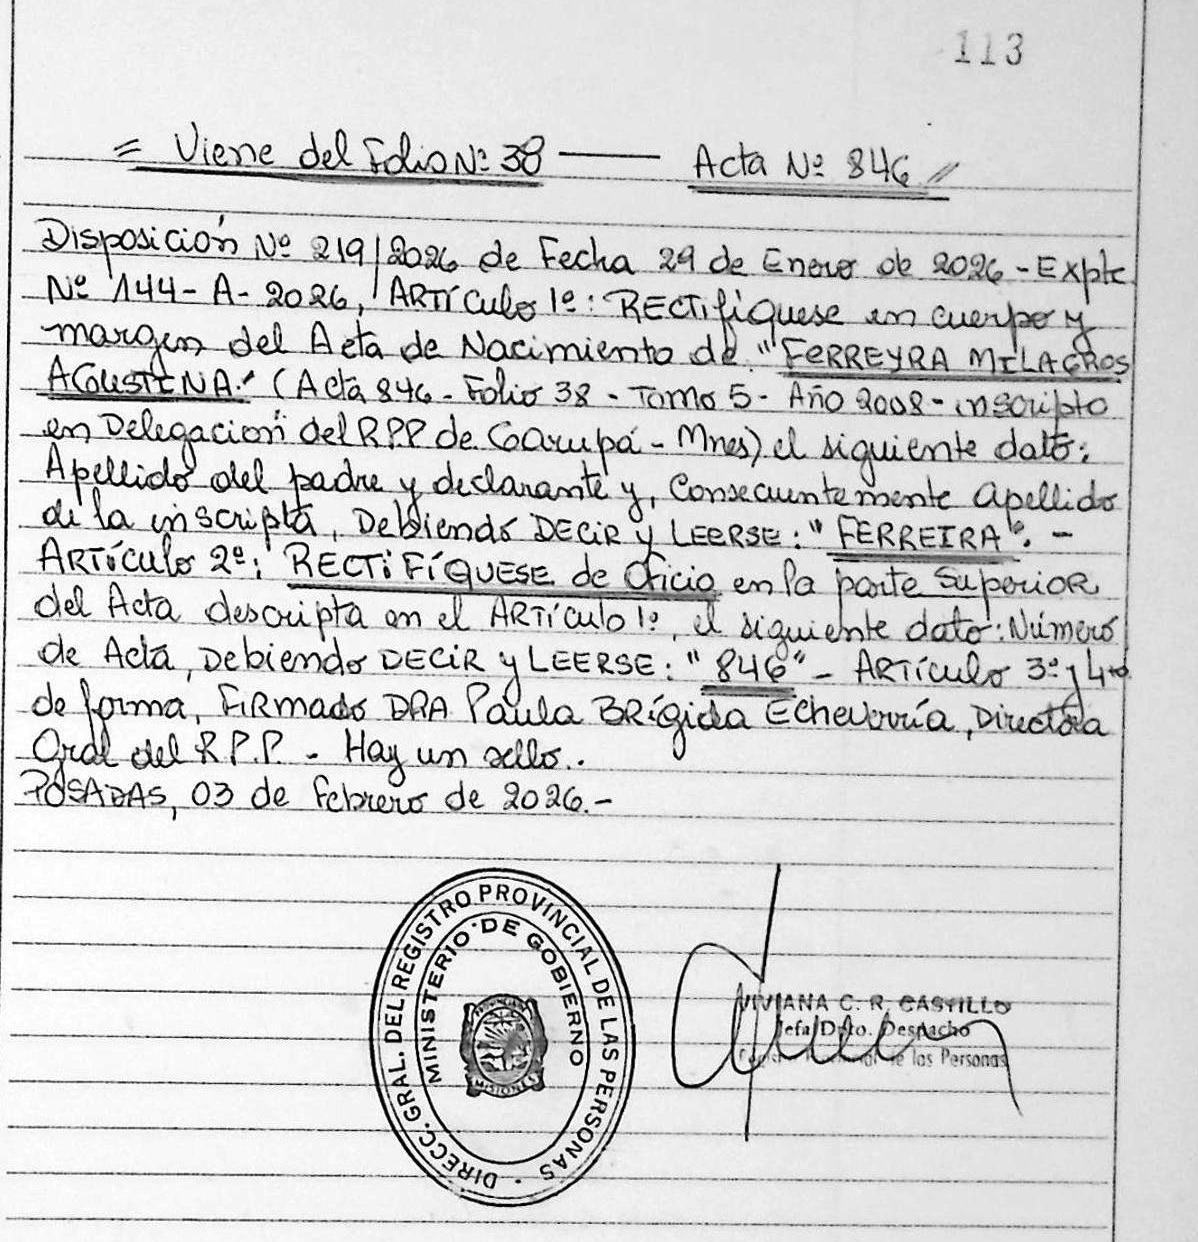 113
= Viene del Folio Nº 38 —— Acta Nº 846 //
Disposición Nº 219/2026 de Fecha 29 de Enero de 2026 - Expte
Nº 144-A-2026, ARTÍCULO 1º: RECTIFÍQUESE en cuerpo y
margen del Acta de Nacimiento de "FERREYRA MILAGROS
AGUSTINA" (Acta 846 - Folio 38 - Tomo 5 - Año 2008 - inscripto
en Delegación del RPP de Garupá - Mnes) el siguiente dato:
Apellido del padre y declarante y, Consecuentemente apellido
de la inscripta, Debiendo DECIR y LEERSE: "FERREIRA". -
ARTÍCULO 2º: RECTIFÍQUESE de Oficio en la parte Superior
del Acta descripta en el ARTÍCULO 1º, el siguiente dato: Número
de Acta, Debiendo DECIR y LEERSE: "846" - ARTÍCULO 3º y 4to
de forma, Firmado DRA Paula BRígida Echeverría, Directora
Gral del R.P.P. - Hay un sello..
POSADAS, 03 de Febrero de 2026.-
DIRECC. GRAL. DEL REGISTRO PROVINCIAL DE LAS PERSONAS
MINISTERIO DE GOBIERNO
MISIONES
VIVIANA C. R. CASTILLO
Jefa Dpto. Despacho
de las Personas